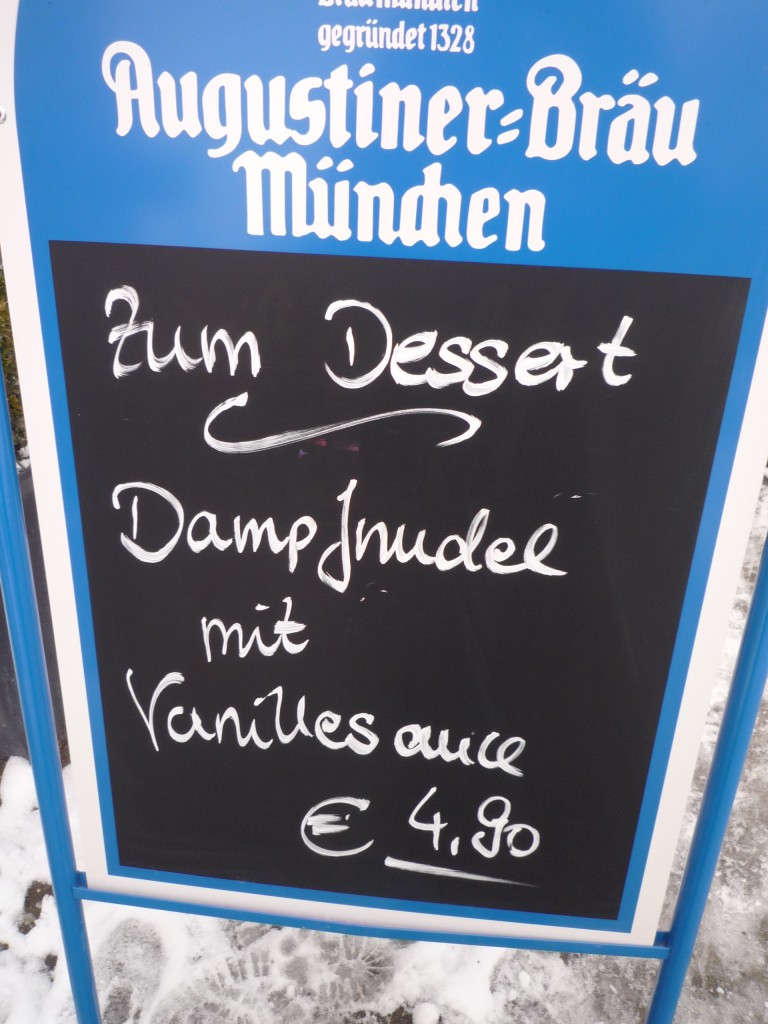 gegründet 1328
Augustiner-Bräu
München
Zum Dessert
Dampfnudel
mit
Vanillesauce
€ 4,90